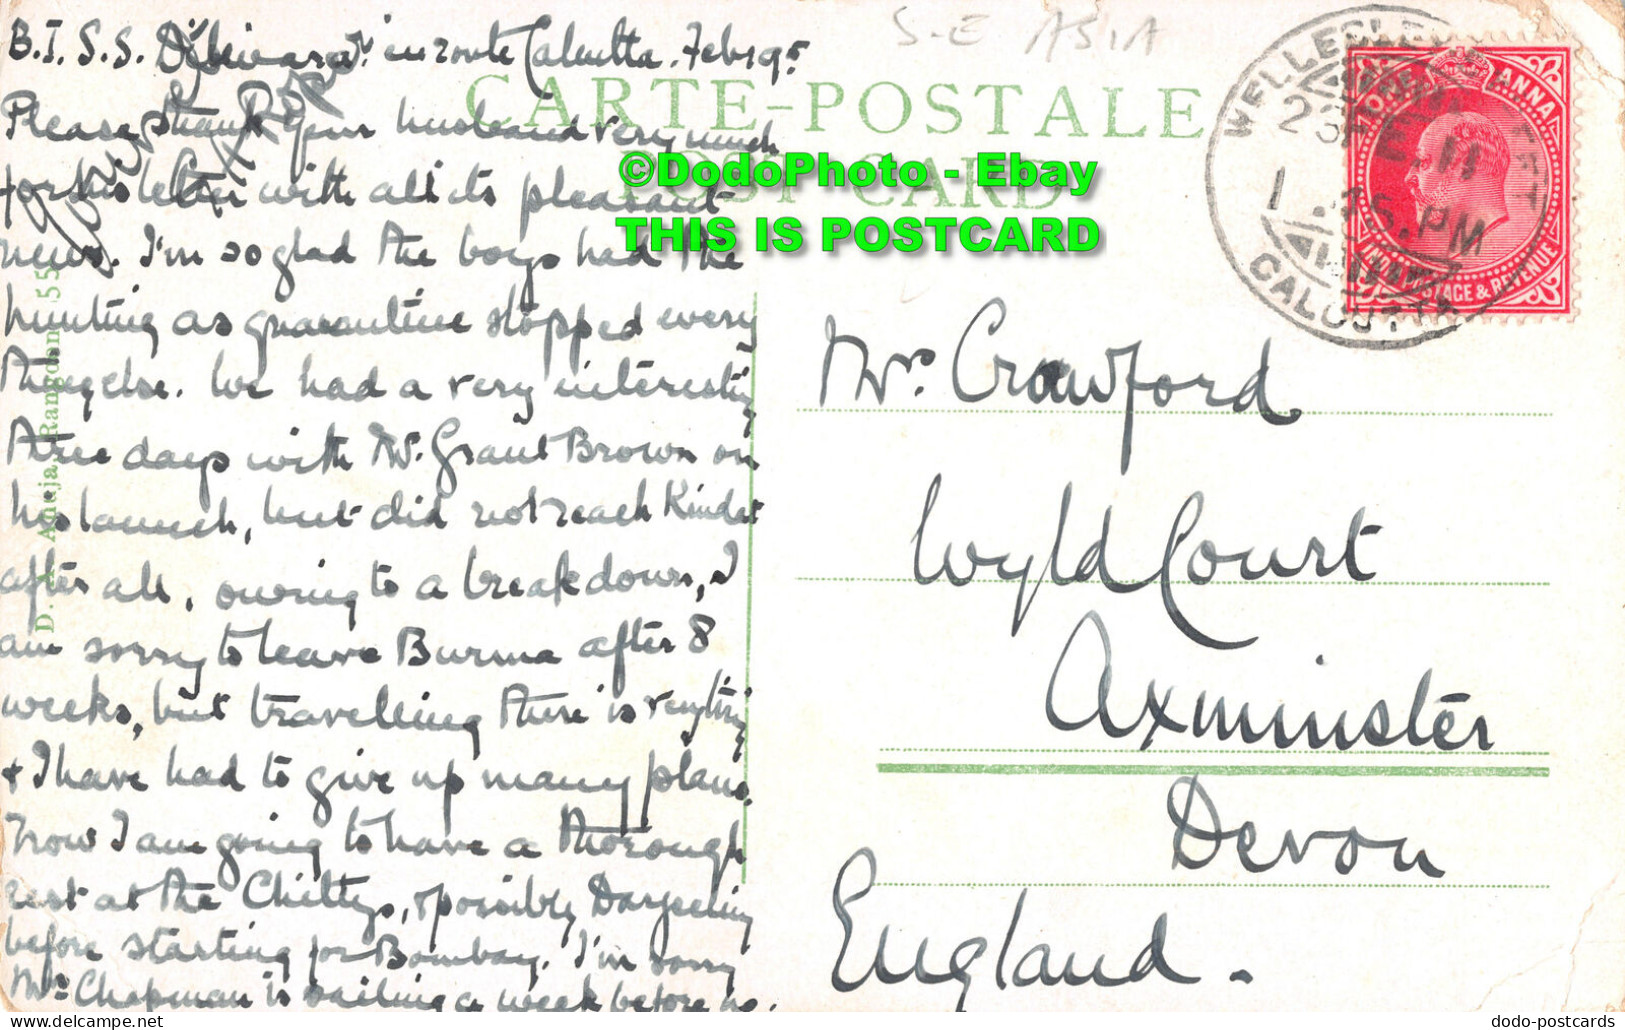 B.I.S.S. "Dilwara" en route Calcutta. Feb 19th
Please thank your husband very much
for his letter with all its pleasant
news. I'm so glad the boys had the
hunting as quarantine stopped every
thing else. We had a very interesting
three days with Mr. Grant Brown on
his launch, but did not reach Kindat
after all, owing to a breakdown, I
am sorry to leave Burma after 8
weeks, but travelling there is very tiring
& I have had to give up many plans.
Now I am going to have a thorough
rest at the Chittys, & possibly Darjeeling
before starting for Bombay. I'm sorry
Mrs Chapman is sailing a week before us.
Yours
D. A. Ahuja, Rangoon 55
S-E ASIA
CARTE-POSTALE
POST CARD
©DodoPhoto - Ebay
THIS IS POSTCARD
WELLESLEY
CALCUTTA
.PM
ONE ANNA
INDIA POSTAGE & REVENUE
Mrs. Crawford
Wyld Court
Axminster
Devon
England.
dodo-postcards